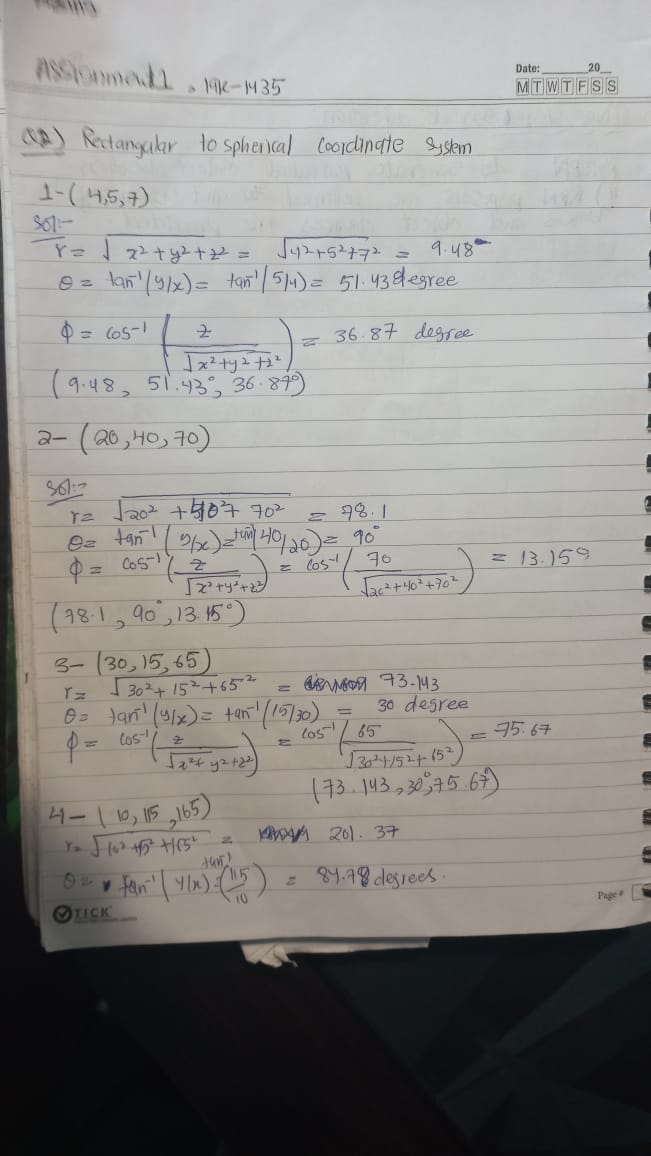 Assignment 1 . 19k-1435
Date: 20
M T W T F S S
Q2) Rectangular to spherical Coordinate System
1-(4,5,7)
Sol:-
r = √x² + y² + z² = √4²+5²+7² = 9.48
θ = tan⁻¹(y/x) = tan⁻¹(5/4) = 51.43 degree
ϕ = cos-1 (z/√x²+y²+z²) = 36.87 degree
(9.48, 51.43°, 36.87°)
2- (20,40,70)
Sol:-
r= √20² + 40² + 70² = 78.1
θ= tan⁻¹(y/x)=tan⁻¹(40/20)= 90°
ϕ = cos-¹(z/√x²+y²+z²) = cos-¹(70/√20²+40²+70²) = 13.15°
(78.1, 90°, 13.15°)
3- (30,15,65)
r= √30²+ 15²+65² = 73.143
θ= tan⁻¹(y/x)= tan⁻¹(15/30) = 30 degree
ϕ = cos-¹(z/√x²+ y²+z²) = cos-¹(65/√30²+15²+65²) = 75.67
(73.143,30°,75.67°)
4- (10,115,165)
r= = 201.37
θ= tan⁻¹(y/x)=tan⁻¹(115/10) = 84.78 degrees.
TICK
Page #